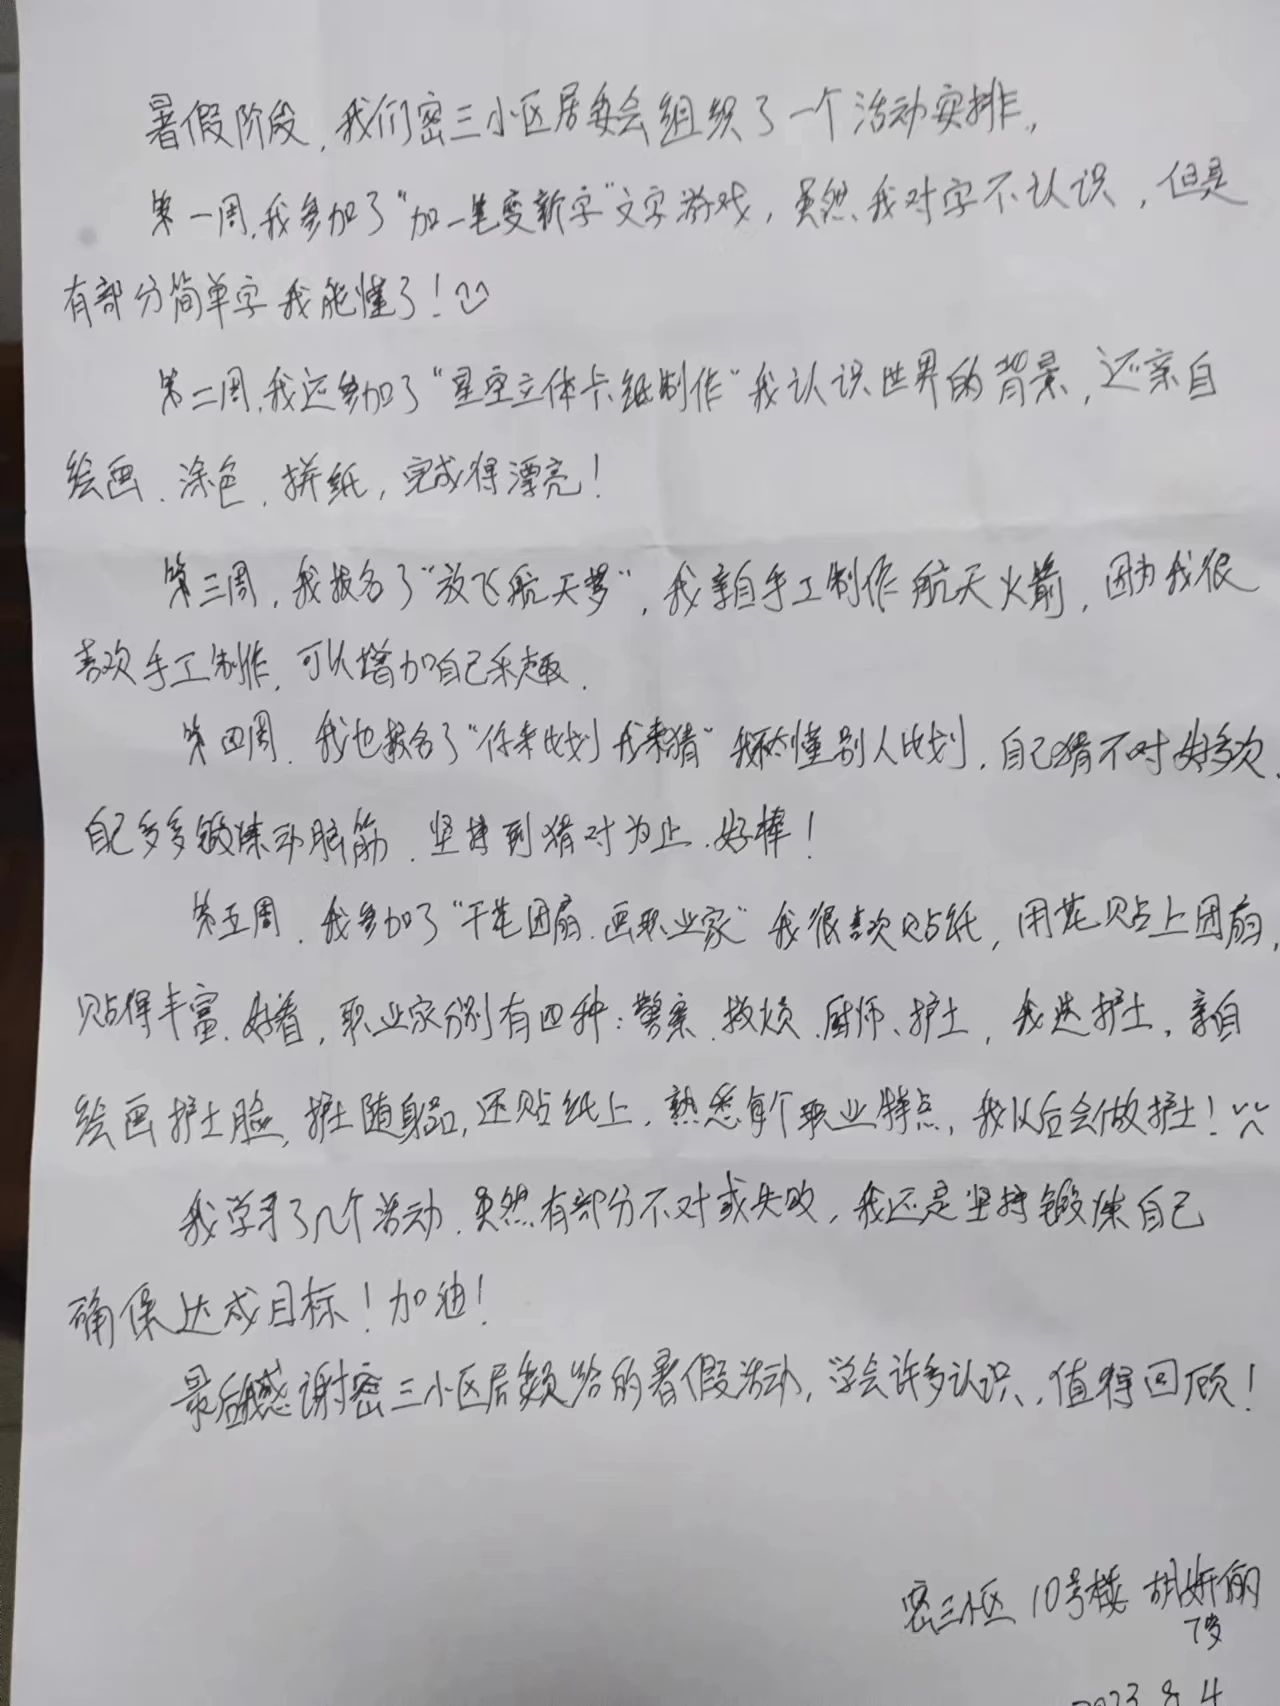 暑假阶段，我们密三小区居委会组织了一个活动安排，
第一周，我参加了“加一笔变新字”文字游戏，虽然我对字不认识，但是
有部分简单字我能懂了！
第二周，我还参加了“星空立体卡纸制作”我认识世界的背景，还亲自
绘画、涂色、拼纸，完成得漂亮！
第三周，我报名了“放飞航天梦”，我亲自手工制作航天火箭，因为我很
喜欢手工制作，可以增加自己乐趣．
第四周．我也报名了“你来比划我来猜”我不太懂别人比划，自己猜不对好多次，
自己多多锻炼动脑筋．坚持到猜对为止．好棒！
第五周．我参加了“干花团扇．画职业家”我很喜欢贴纸，用花贴上团扇，
贴得丰富、好看，职业家分别有四种：警察、救火员、厨师、护士，我选护士，亲自
绘画护士脸，护士随身品，还贴纸上，熟悉每个职业特点，我以后会做护士！
我学习了几个活动．虽然有部分不对或失败，我还是坚持锻炼自己
确保达成目标！加油！
最后感谢密三小区居委员给的暑假活动，学会许多认识，值得回顾！
密三小区 10号楼 胡妍俪
7岁
2023.8.4